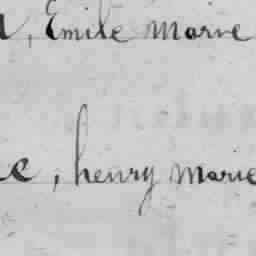 , Emile Marie
, henry Marie